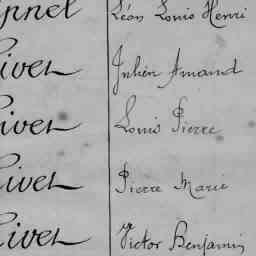 pnel Léon Louis Henri
ivet Julien Amand
ivet Louis Pierre
ivet Pierre Marie
ivet Victor Benjamin